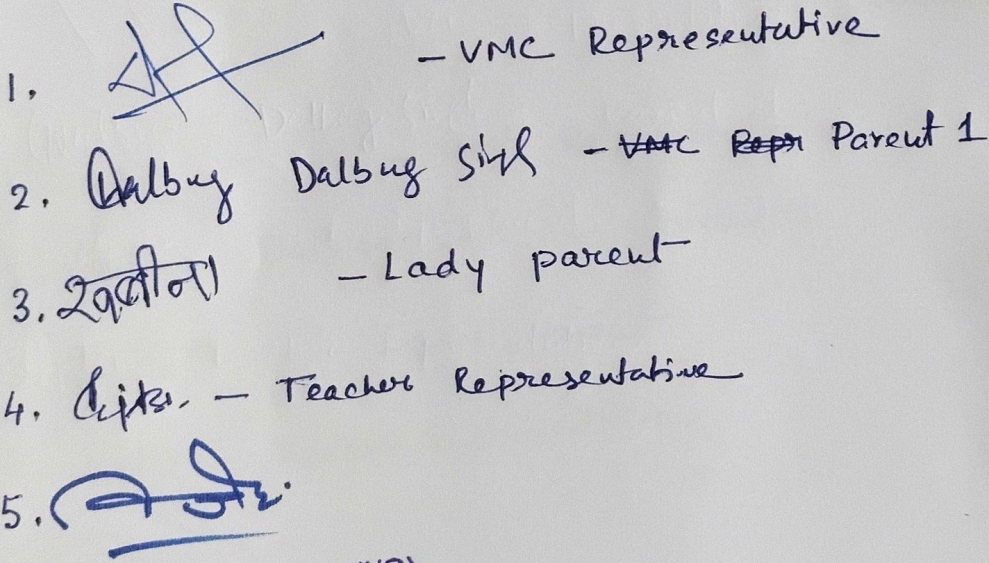 1. - VMC Representative
2. Dalbug Dalbug Singh - VMC Repr Parent 1
3. - Lady parent
4. - Teacher Representative
5.